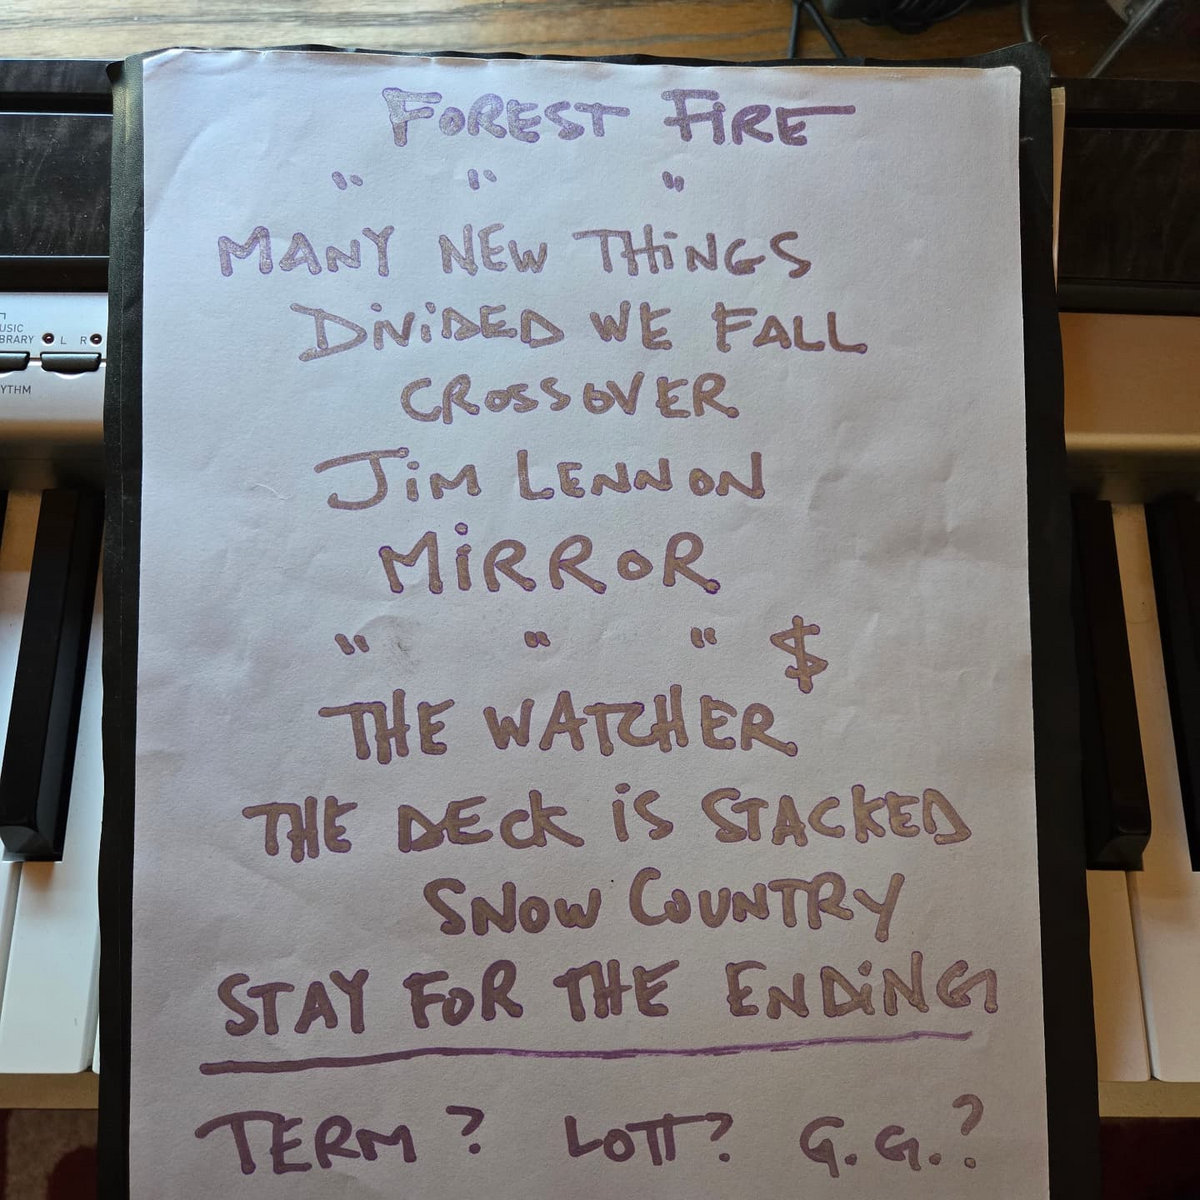 FOREST FIRE
" " "
MANY NEW THiNGS
DiViDED WE FALL
CROSSOVER
JiM LENNON
MiRROR
" " " $
THE WATCHER
THE DECK iS STACKED
SNOW COUNTRY
STAY FOR THE ENDiNG
TERM? LOTT? G.G.?
L R
YTHM